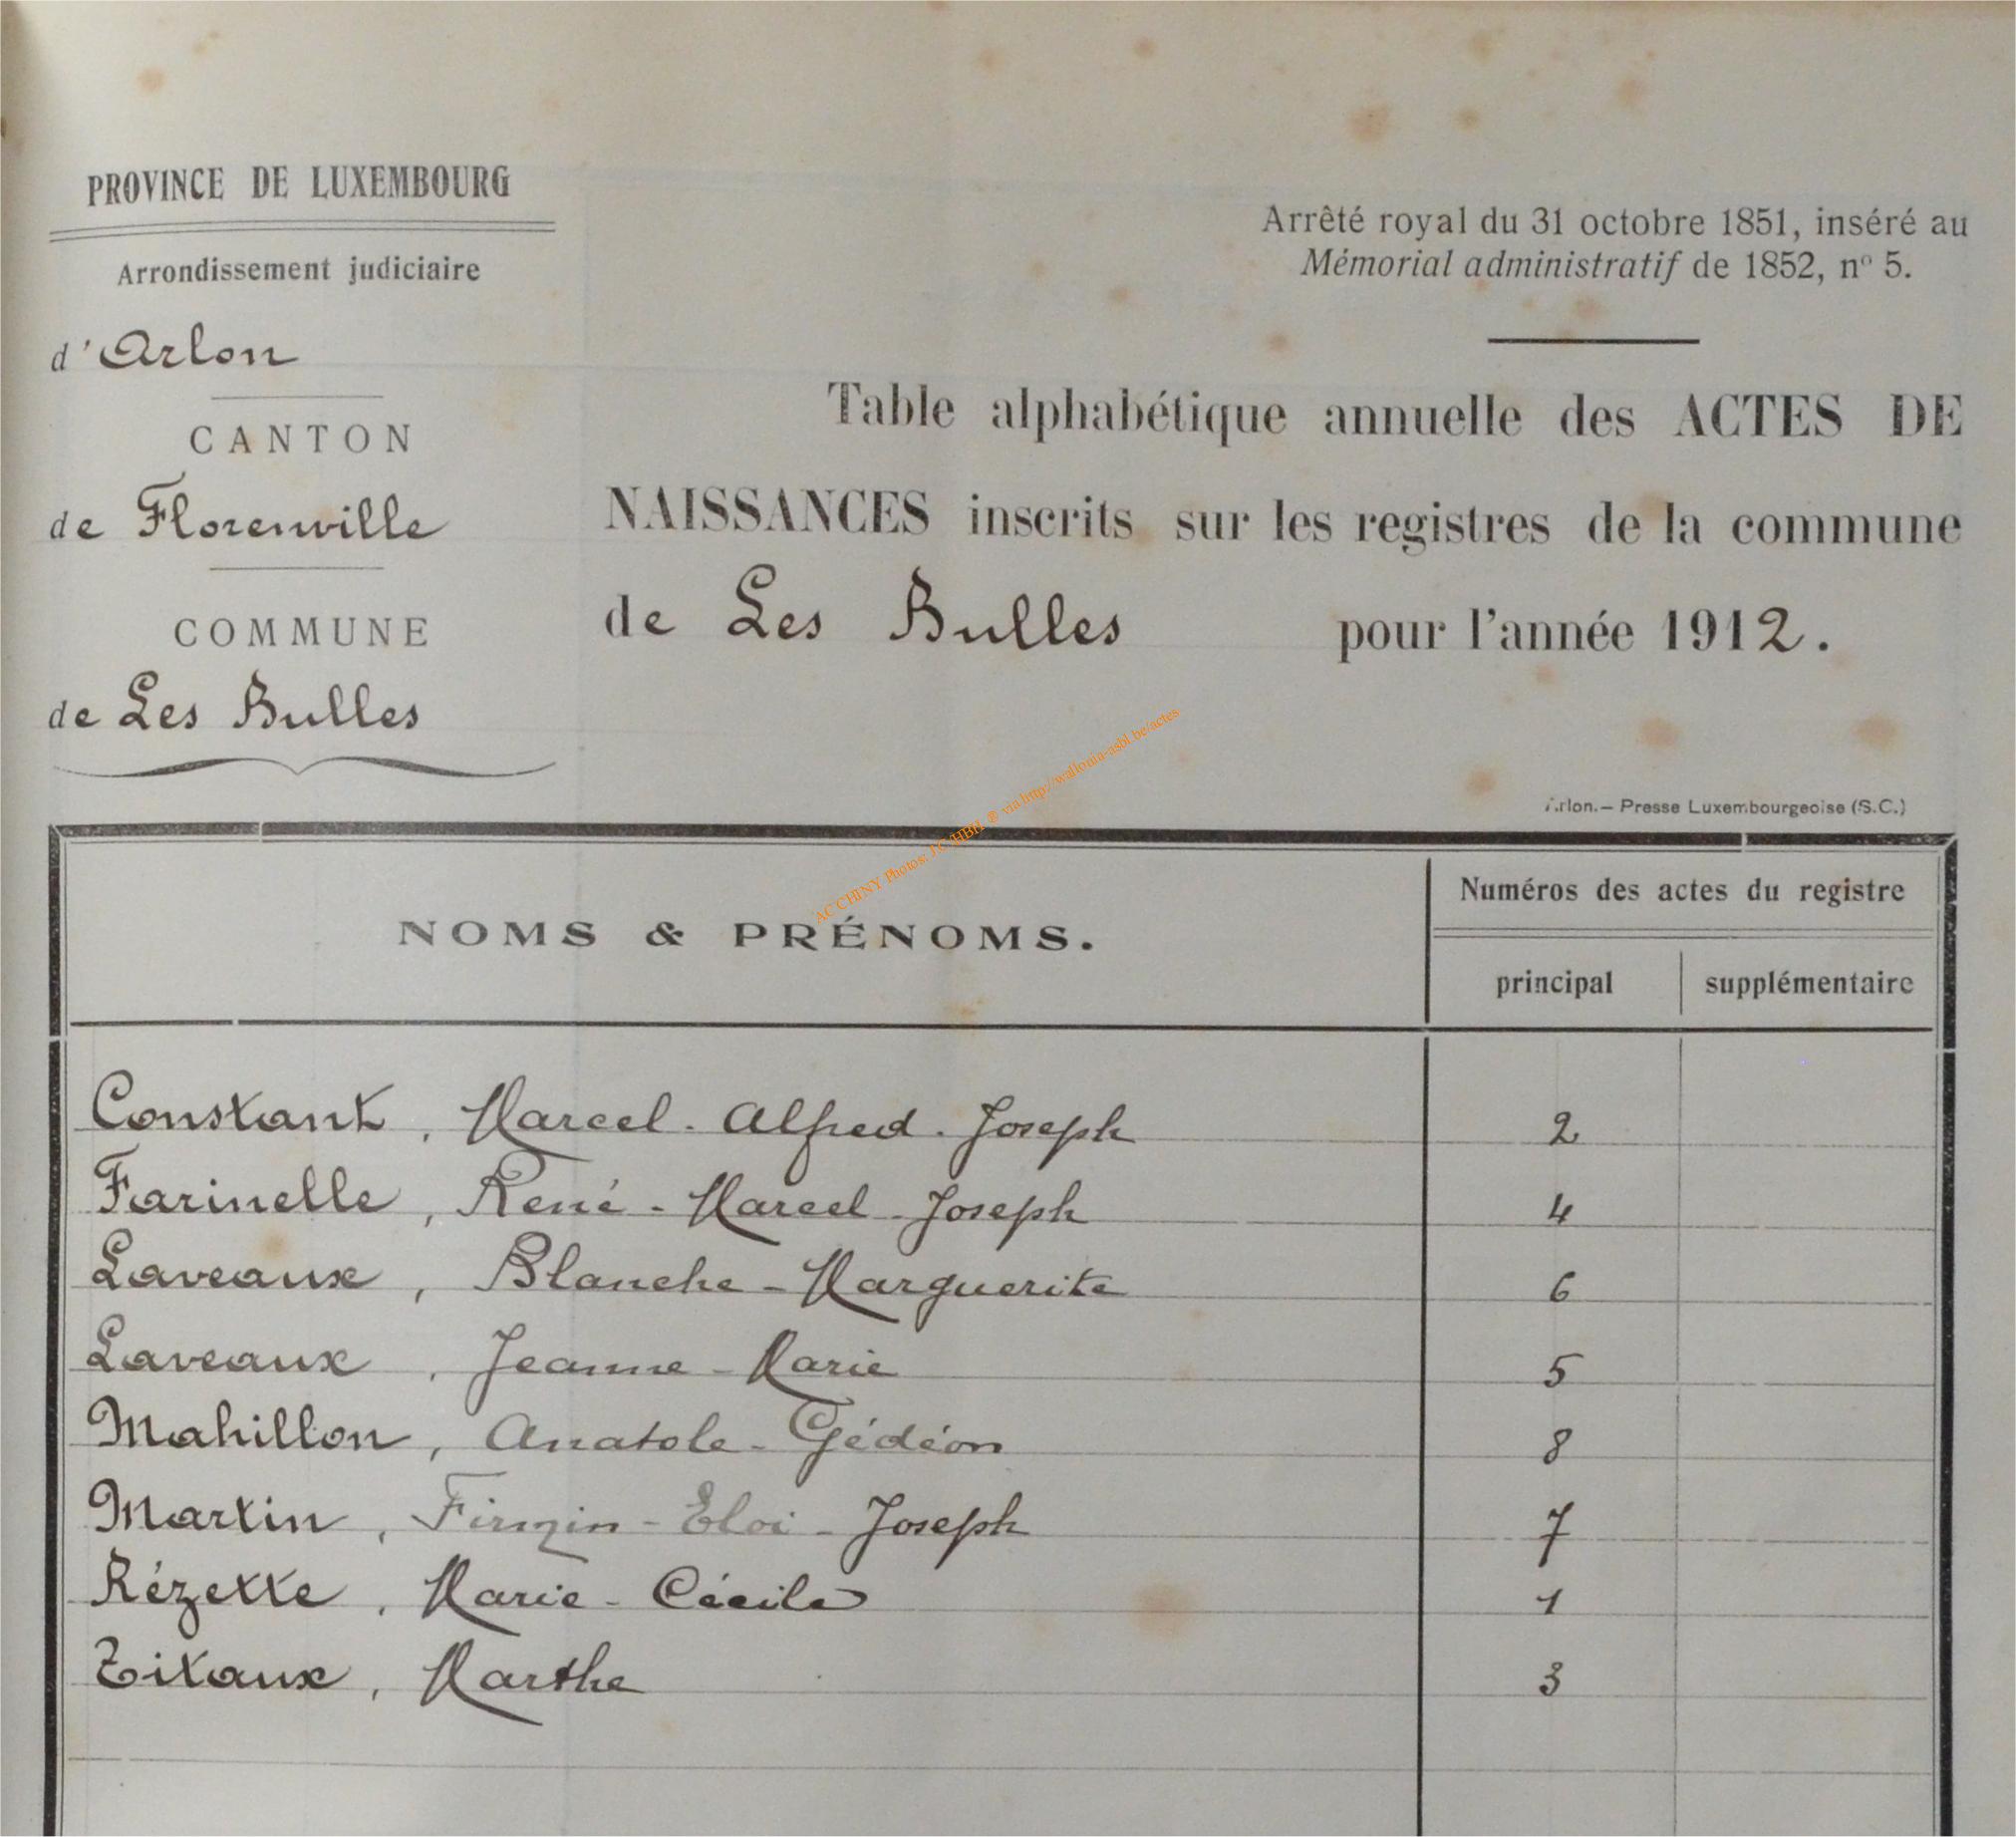 PROVINCE DE LUXEMBOURG
Arrondissement judiciaire
d'Arlon
CANTON
de Florenville
COMMUNE
de Les Bulles
Arrêté royal du 31 octobre 1851, inséré au
Mémorial administratif de 1852, n° 5.
Table alphabétique annuelle des ACTES DE
NAISSANCES inscrits sur les registres de la commune
de Les Bulles pour l'année 1912.
AC CHINY Photos: J C HBH ® via http://wallonia-asbl.be/actes
Arlon. — Presse Luxembourgeoise (S.C.)
NOMS & PRÉNOMS.
Numéros des actes du registre
principal supplémentaire
Constant, Marcel-Alfred-Joseph 2
Farinelle, René-Marcel-Joseph 4
Laveaux, Blanche-Marguerite 6
Laveaux, Jeanne-Marie 5
Mahillon, Anatole-Gédéon 8
Martin, Firmin-Eloi-Joseph 7
Rézette, Marie-Cécile 1
Titaux, Marthe 3